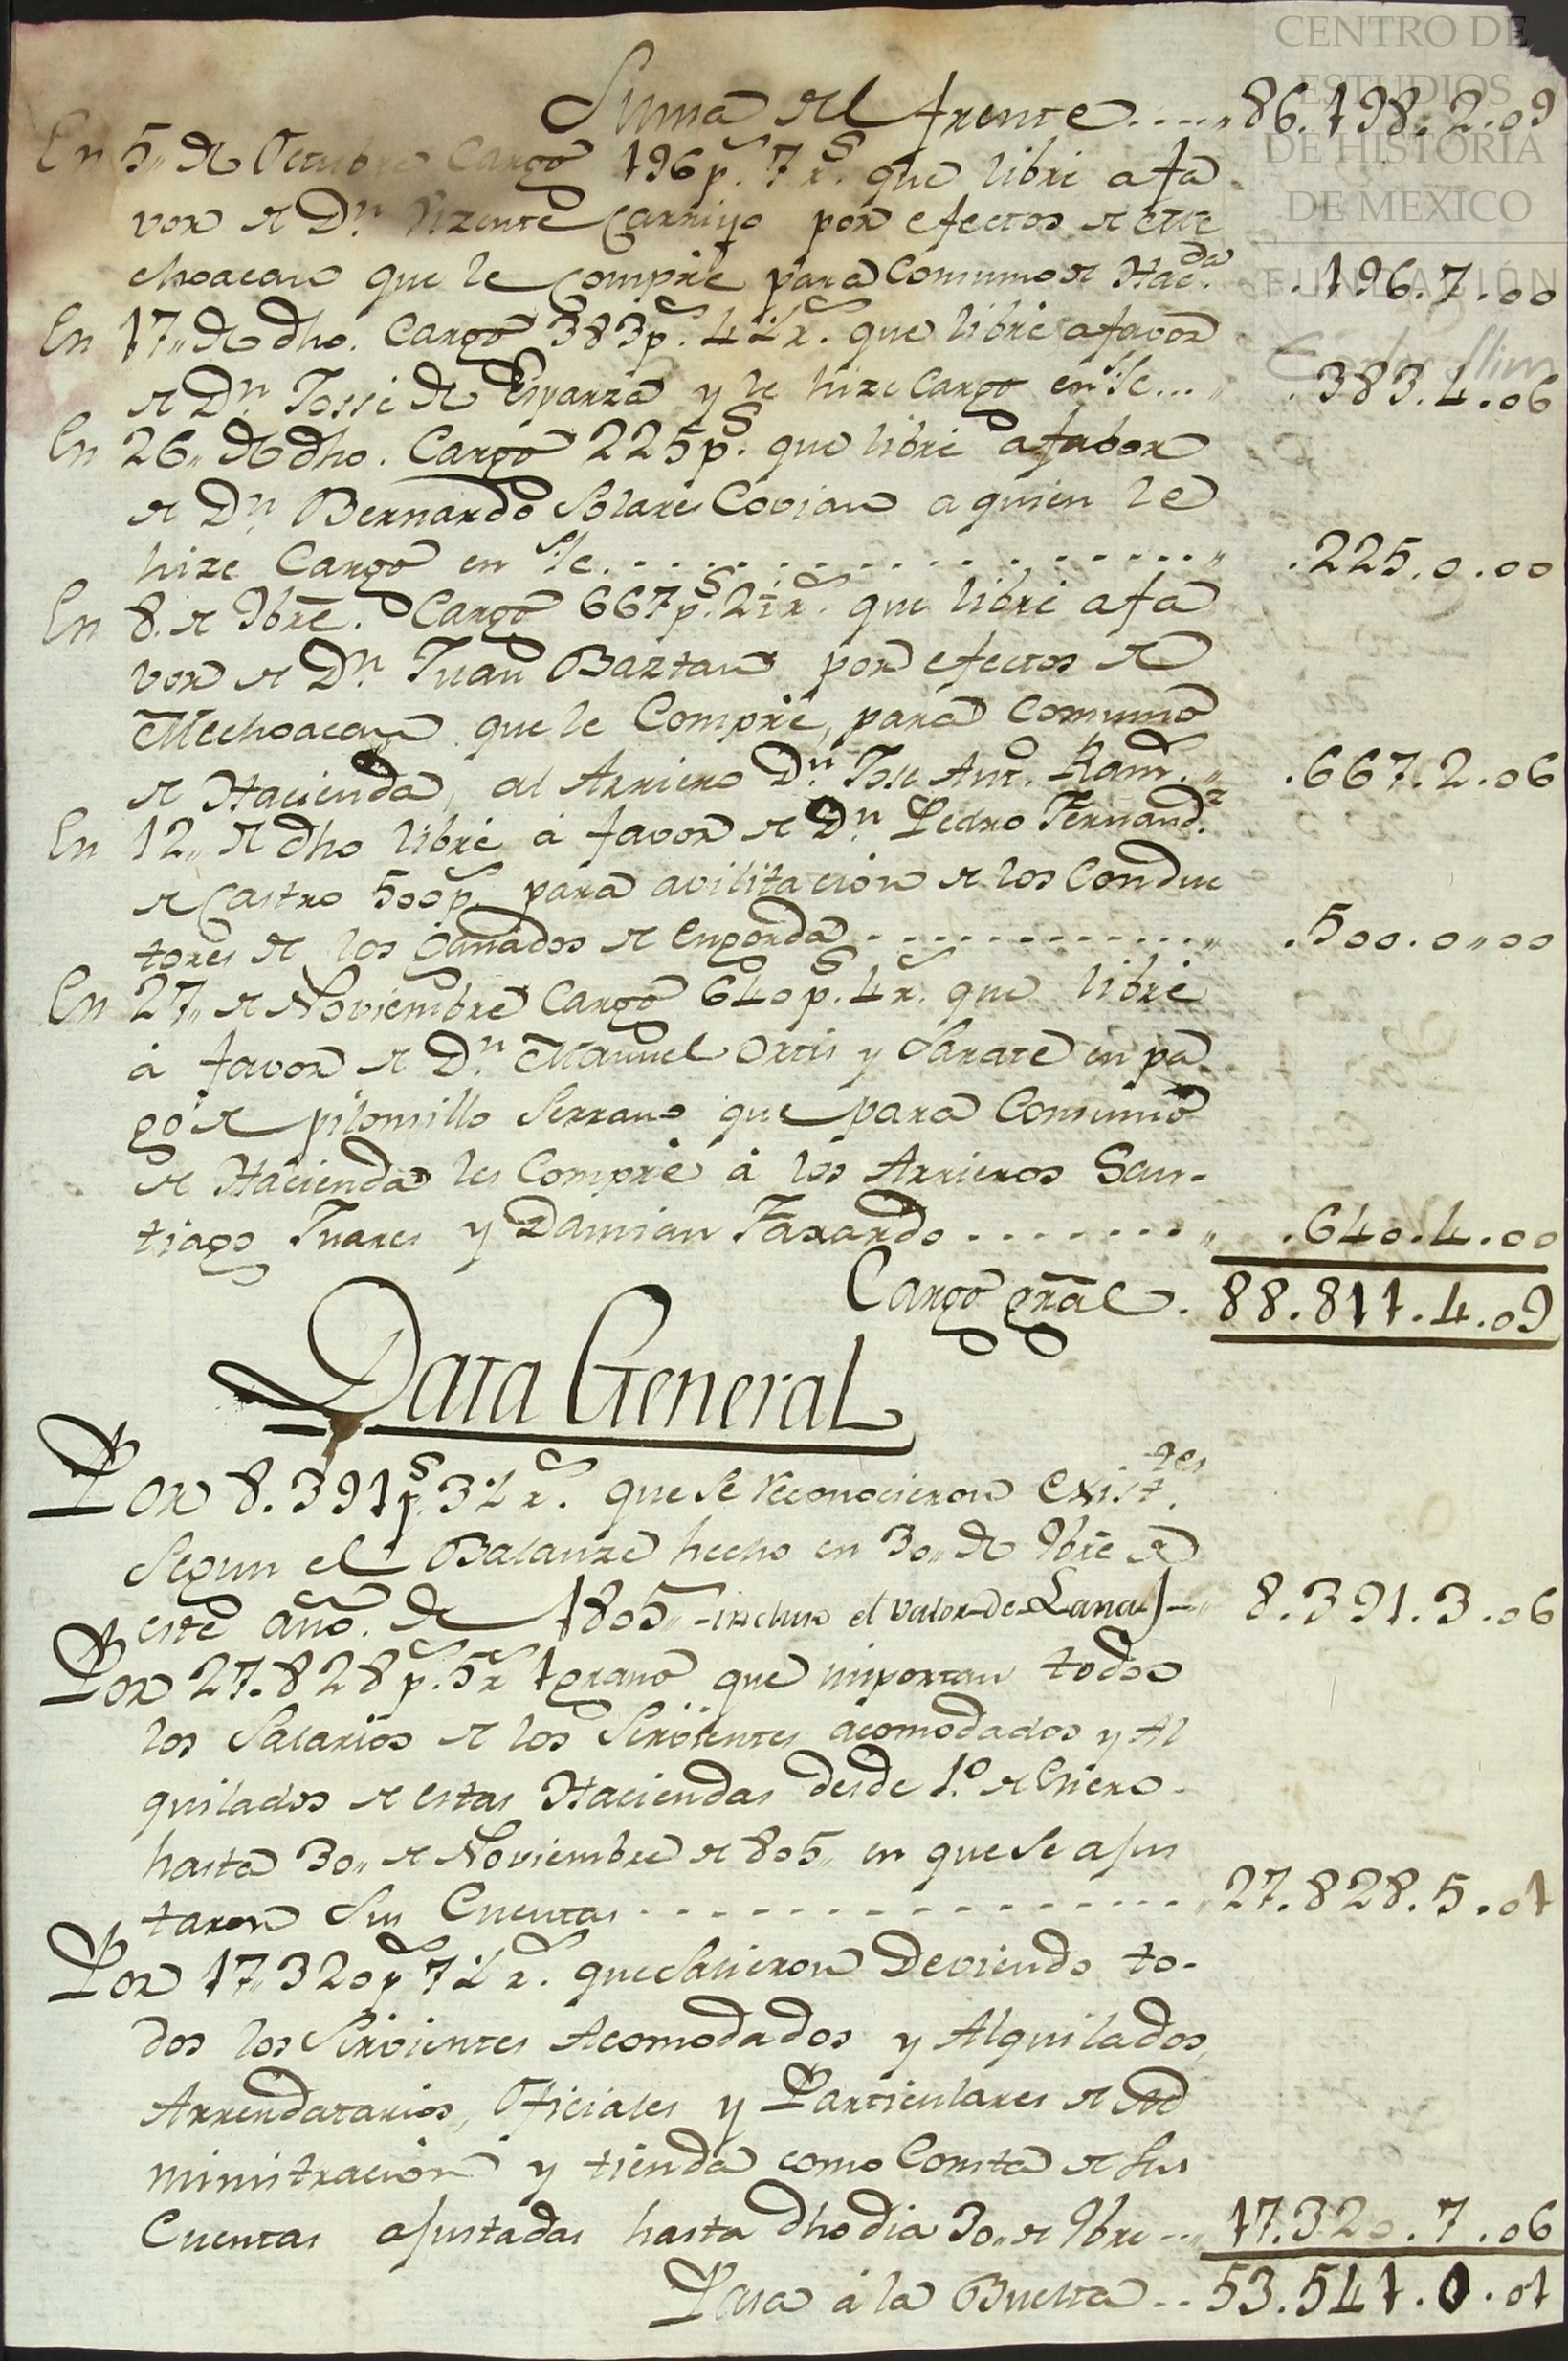 CENTRO DE
ESTUDIOS
DE HISTORIA
DE MEXICO
FUNDACIÓN
Carlos Slim
Suma del frente....,, 86.198.2.09
En 5,, de Octubre Cargo 196p.s 7 r.s que libré a fa
vor de D.n Vizente Carriyo por efectos de Me
choacan que le Compré para Consumo de Hac.da .196.7.00
En 17,, de dho. Cargo 383p.s 4½ r.s que libré a favor
de D.n Josse de Esparza y le hize cargo en Sle... ,, .383.4.06
En 26,, de dho. Cargo 225p.s que libré a fabor
de D.n Bernardo Solares Covian a quien le
hize Cargo en Sle. . . . . . . . . . . . . ,, .225.0.00
En 8. de 9bre. Cargo 667p.s 2½ r.s que libré a fa
vor de D.n Juan Baztan por efectos de
Mechoacan que le Compré, para Consumo
de Hacienda, al Arriero D.n Jose Ant.o Ram.z ,, .667.2.06
En 12,, de dho libré á favor de D.n Pedro Fernand.z
de Castro 500p.s para avilitacion de los Conduc
tores de los ganados de Engorda . . . . . . . . . ,, .500.0,,00
En 27,, de Noviembre Cargo 640p.s 4 r.s que libré
á favor de D.n Manuel Ortis y Sarate en pa
go de piloncillo Serrano que para Consumo
de Hacienda les Compré á los Arrieros San-
tiago Juares y Damian Faxardo . . . . . . . ,, .640.4.00
Cargo grãl. 88.811.4.09
Data General
Por 8.391p.s 3½ r.s que se reconocieron Exist.tes
Segun el Balanze hecho en 30,, de 9bre de
este año. de 1805,, -incluso el valor de Lana)-,, 8.391.3.06
Por 27.828p.s 5r 1 grano que importan todos
los Salarios de los Sirvientes acomodados y Al
quilados de estas Haciendas desde 1.o de Enero.
hasta 30,, de Noviembre de 805,, en que se ajus
taron Sus Cuentas . . . . . . . . . . . . . ,, 27.828.5.01
Por 17,,320p.s 7½ r.s que Salieron Deviendo to-
dos los Sirvientes Acomodados y Alquilados,
Arrendatarios, Oficiales y Particulares de Ad
ministracion y tienda como Consta de Sus
Cuentas ajustadas hasta dho dia 30,, de 9bre...,, 17.320.7.06
Pasa á la Buelta.. 53.541.0.01